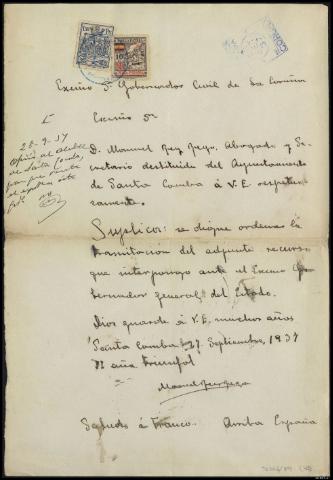 Excmo Sr Gobernador Civil de La Coruña
Excmo Sr
D. Manuel Rey Rego, Abogado y Se-
cretario destituido del Ayuntamiento
de Santa Comba á V.E. respetuo-
samente.
Suplica: se digne ordenar la
tramitación del adjunto recurso
que interpongo ante el Excmo Go-
bernador general del Estado.
Dios guarde á V.E. muchos años
Santa Comba 27 Septiembre, 1937
II año Triunfal
Manuel Rey Rego
Saludo a Franco. Arriba España
28-9-37
Oficio al Alcalde
de Santa Comba,
para que
el